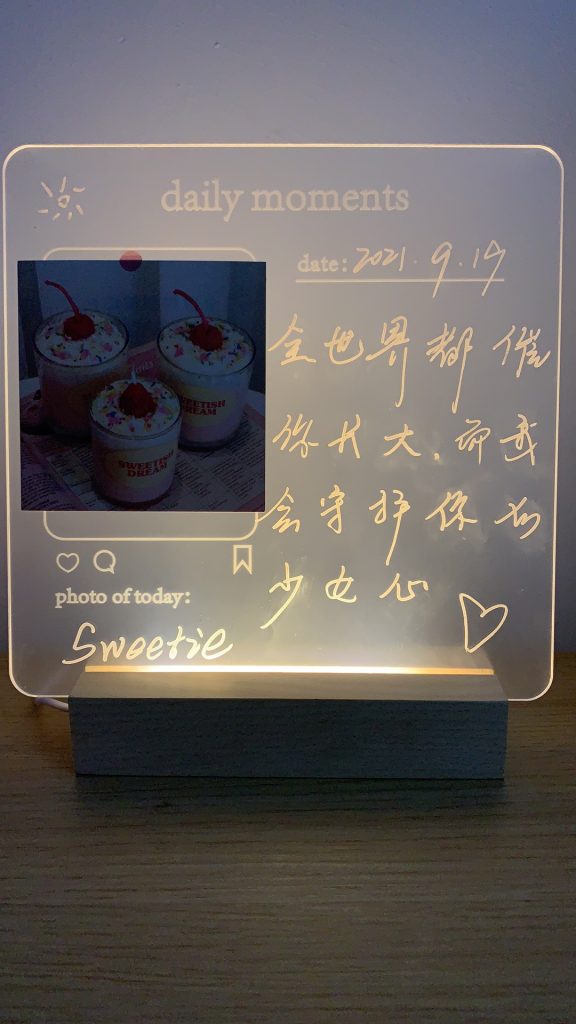 daily moments
date: 2021.9.17
全世界都催
你长大,而我
会守护你的
少女心
SWEETISH
DREAM
SWEETISH
DREAM
photo of today:
Sweetie